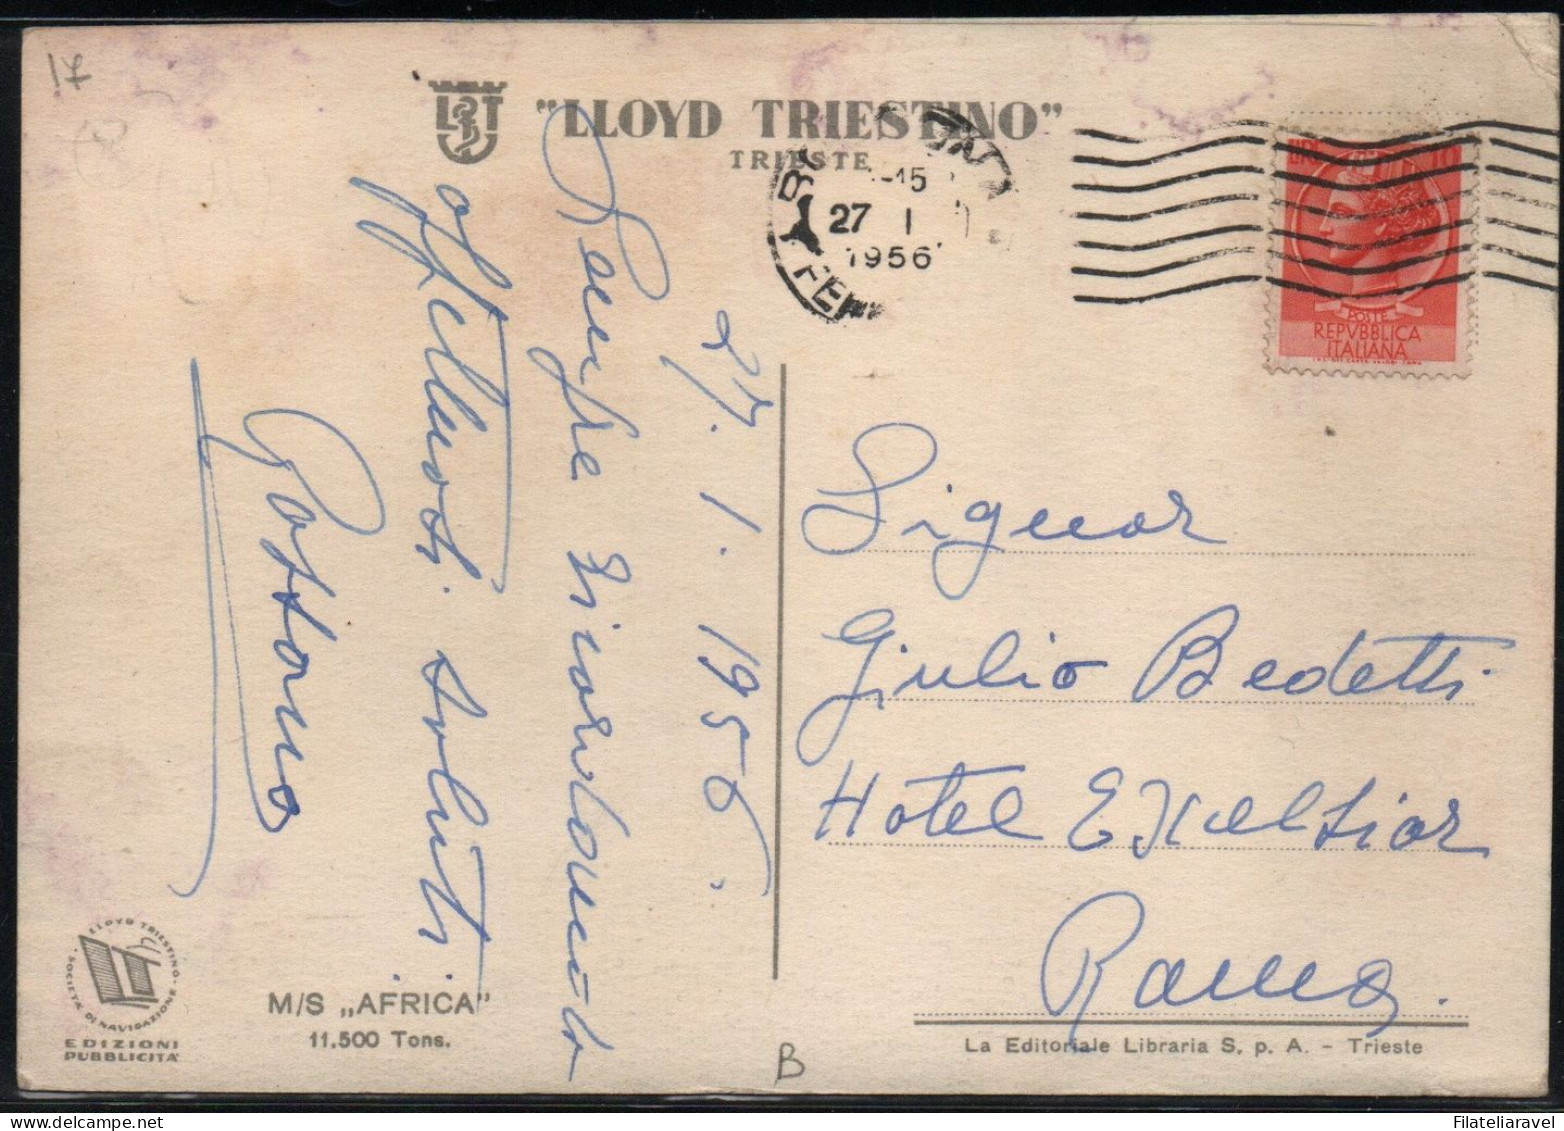 17
"LLOYD TRIESTINO"
TRIESTE
-15
27 I
1956
FE
LIRE 10
POSTE
REPVBBLICA
ITALIANA
27.1.1956.
Sempre ricordandoti
affettuosi saluti
Signor
Giulio Bedetti
Hotel Excelsior
Roma.
LLOYD TRIESTINO
SOCIETÀ DI NAVIGAZIONE
EDIZIONI
PUBBLICITÀ
M/S „AFRICA"
11.500 Tons.
La Editoriale Libraria S. p. A. - Trieste
B
Filateliaravel